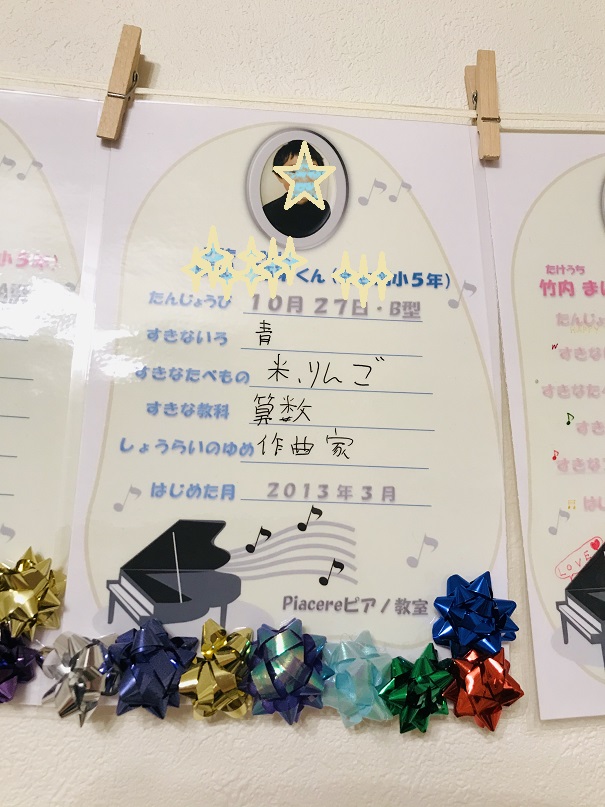 くん（ 小５年）
たんじょうび １０月２７日・Ｂ型
すきないろ 青
すきなたべもの 米、りんご
すきな教科 算数
しょうらいのゆめ 作曲家
はじめた月 ２０１３年３月
Piacereピアノ教室
小５年）
たけうち
竹内 ま
たんじょ
すきない
すきなた
すき
しょうら
はじ
LOVE